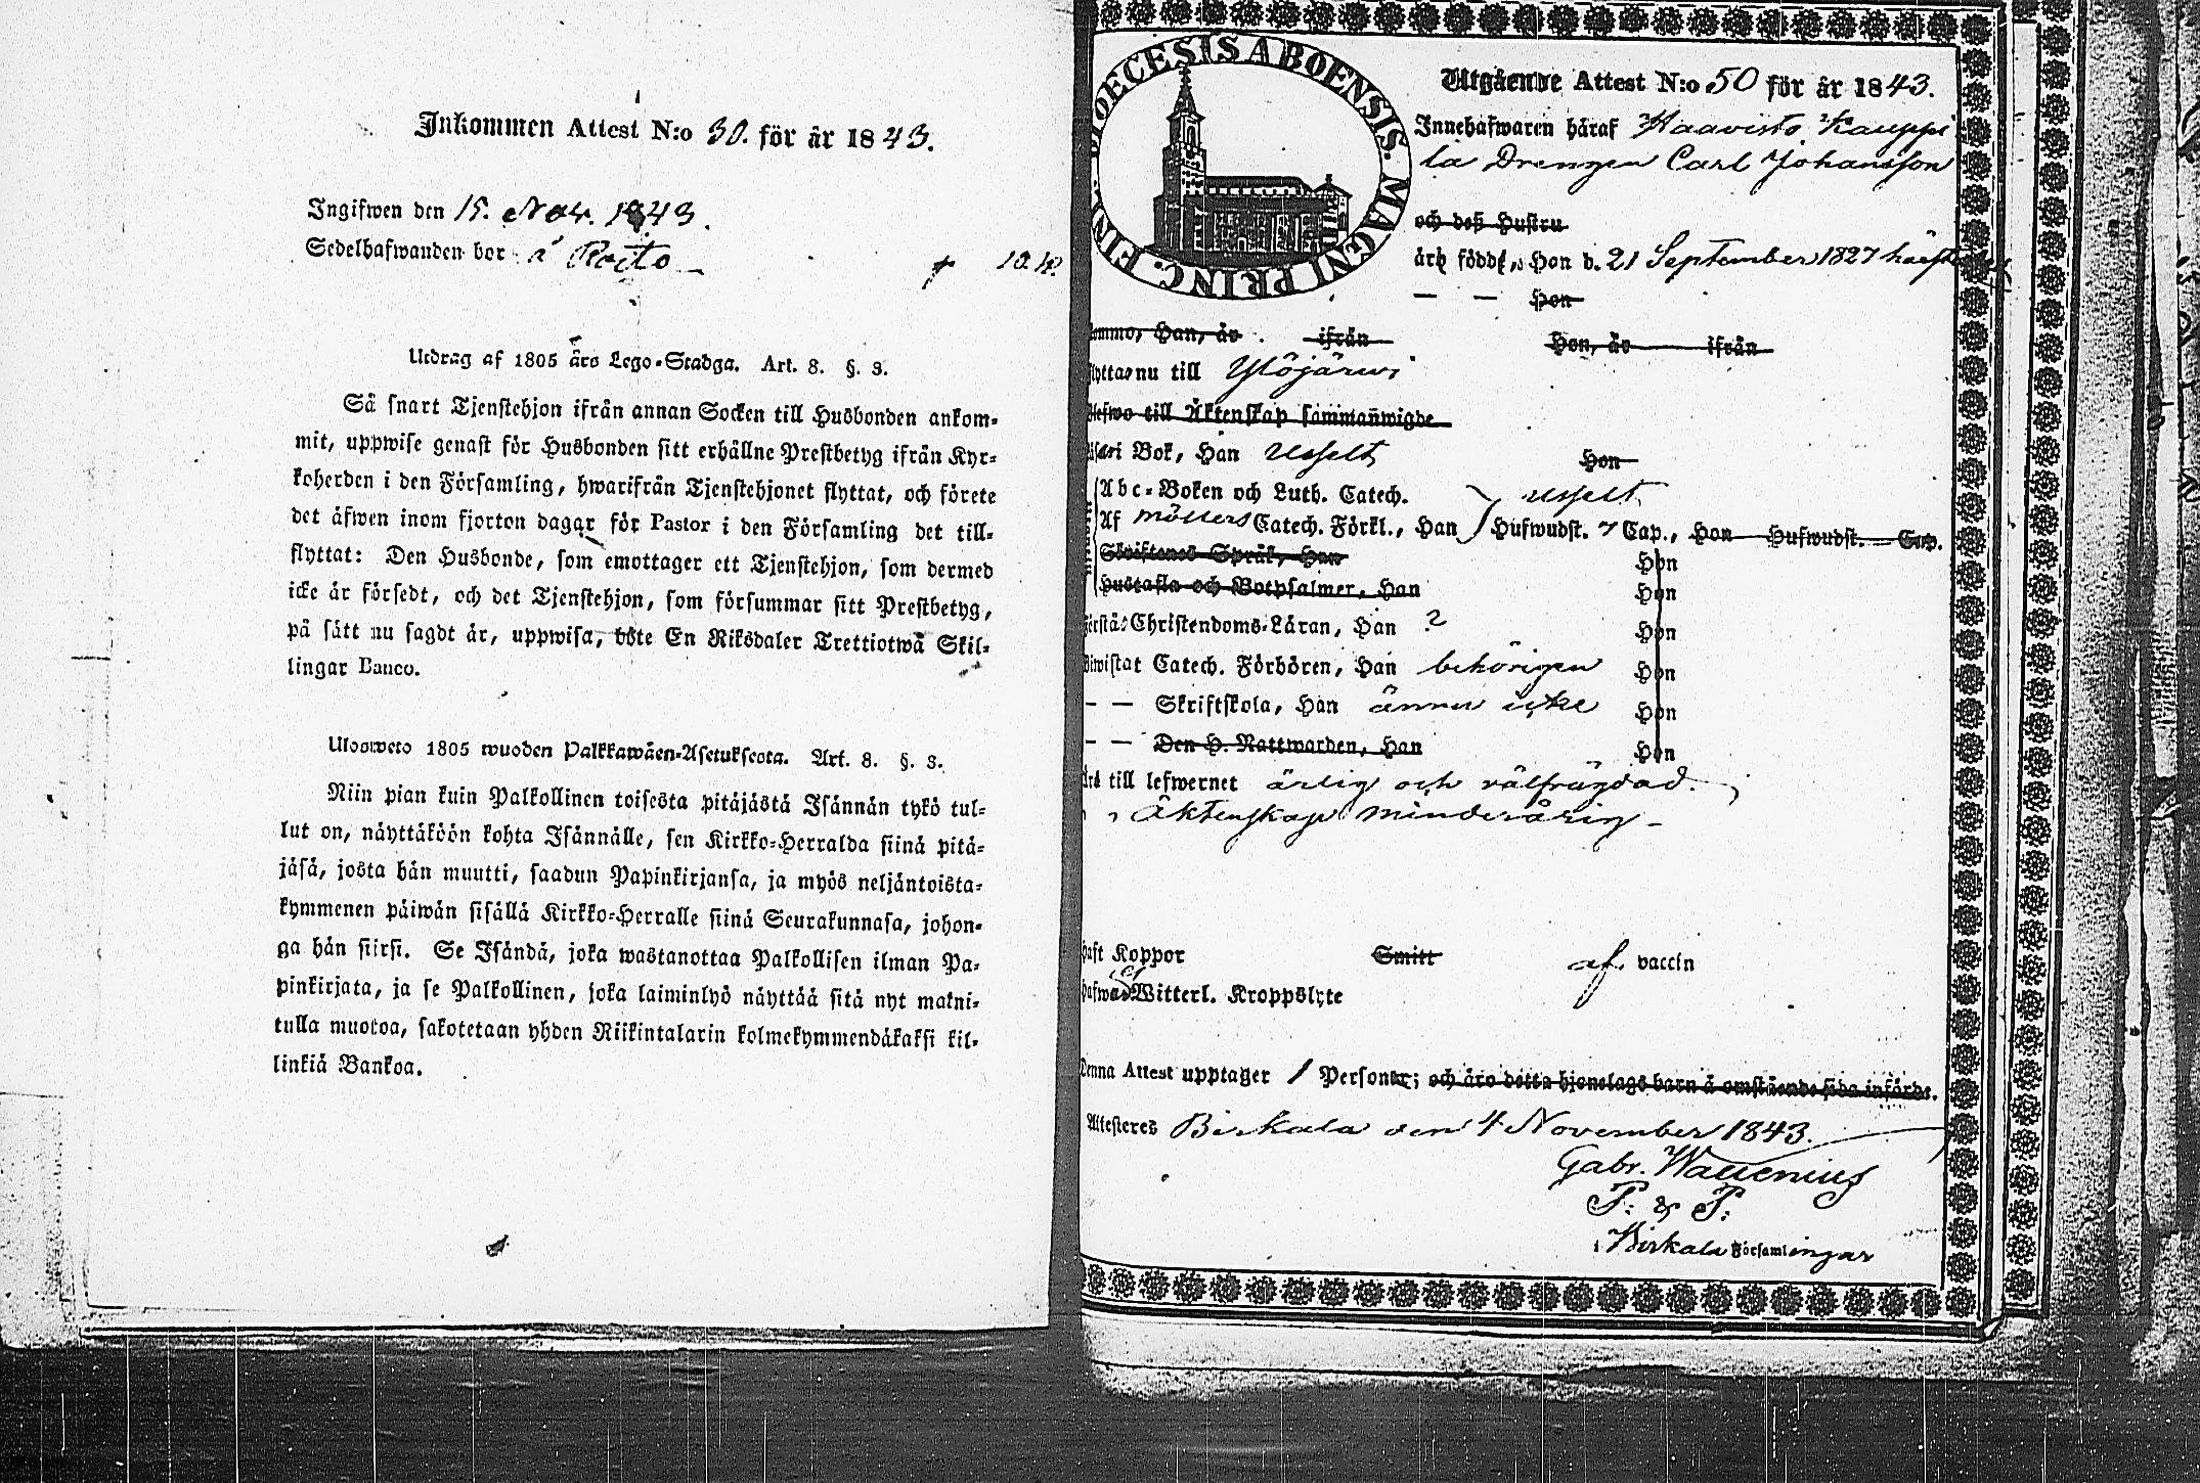 Inkommen Attest N:o 30. för år 1843.
Ingifwen den 15. Nov. 1843.
Sedelhafwanden bor å Roito
Utdrag af 1805 års Lego-Stadga. Art. 8. §. 3.
Så snart Tjenstehjon ifrån annan Socken till Husbonden ankom-
mit, uppwise genast för Husbonden sitt erhållne Prestbetyg ifrån Kyr-
koherden i den Församling, hwarifrån Tjenstehjonet flyttat, och förete
det äfwen inom fjorton dagar för Pastor i den Församling det till-
flyttat: Den Husbonde, som emottager ett Tjenstehjon, som dermed
icke är försedt, och det Tjenstehjon, som försummar sitt Prestbetyg,
på sätt nu sagdt är, uppwisa, böte En Riksdaler Trettiotwå Skil-
lingar Banco.
Ulosweto 1805 wuoden Palkkawäen-Asetuksesta. Art. 8. §. 3.
Niin pian kuin Palkollinen toisesta pitäjästä Isännän tykö tul-
lut on, näyttäköön kohta Isännälle, sen Kirkko-Herralda siinä pitä-
jäsä, josta hän muutti, saadun Papinkirjansa, ja myös neljäntoista-
kymmenen päiwän sisällä Kirkko-Herralle siinä Seurakunnasa, johon-
ga hän siirsi. Se Isändä, joka wastanottaa Palkollisen ilman Pa-
pinkirjata, ja se Palkollinen, joka laiminlyö näyttää sitä nyt maini-
tulla muotoa, sakotetaan yhden Riikintalarin kolmekymmendäkaksi kil-
linkiä Bankoa.
DIOECESIS ABOENSIS. MAGNI PRINC. FINL.
Utgående Attest N:o 50 för år 1843.
Innehafwaren häraf Haavisto Kauppi
la Drengen Carl Johansson
och deß Hustru
äro födde, Hon d. 21 September 1827 härstädes
— — Hon
komme, Han, år ifrån Hon, år ifrån
flyttar nu till Ylöjärwi
Blefwo till Äktenskap sammanwigde
Läser i Bok, Han usselt Hon
Abc-Boken och Luth. Catech. usselt
Af Möllers Catech. Förkl., Han Hufwudst. 7 Cap., Hon Hufwudst. Cap.
Skriftenes Språk, Han Hon
Hustafla och Botpsalmer, Han Hon
Förstår Christendoms-Läran, Han ? Hon
Biwistat Catech. Förhören, Han behörigen Hon
— — Skriftskola, Han ännu icke Hon
— — Den H. Nattwarden, Han Hon
till lefwernet ärlig och välfrägdad.
" " Äktenskap minderårig —
haft Koppor Smitt af vaccin
Witterl. Kroppslyte
Denna Attest upptager 1 Personer; och äro detta hjonelags barn å omstående sida införde.
Attesteres Birkala den 4 November 1843.
Gabr. Wallenius
P: & P:
i Birkala Församlingar